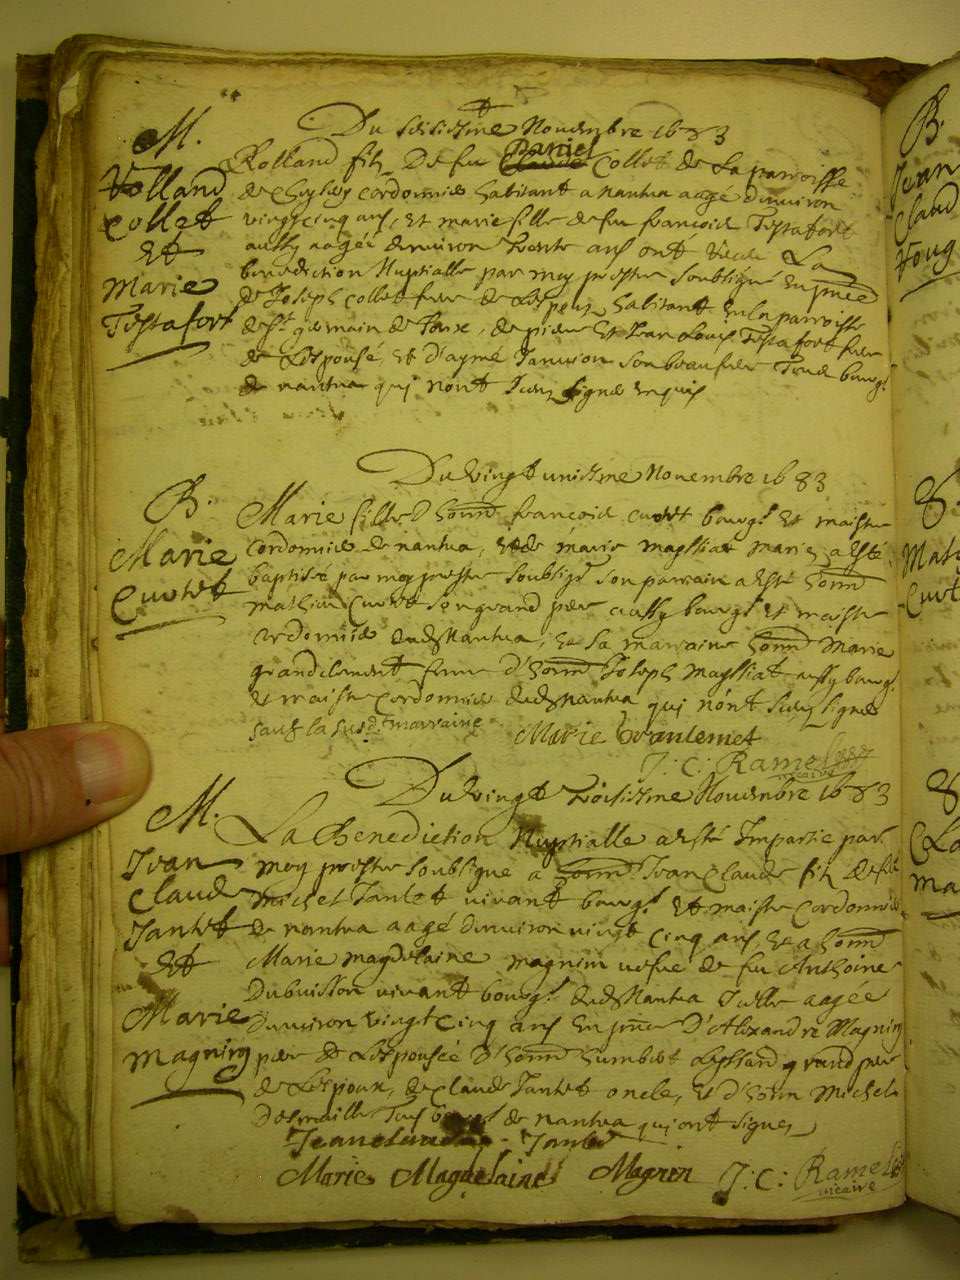 M.
Rolland
Collet
Et
Marie
Testafort
Du seisiesme Novembre 1683
Rolland filz De feu Daniel Collet de La parroisse
de cordonnier habitant a nantua aagé d'environ
vingt cinq ans, Et marie fille de feu francois Testafort
aussy aagée denviron trante ans ont La
benediction Nuptialle par moy prestre soubsigné En pnce
de Joseph collet frere de L'espoux habitant En la parroisse
de St germain de Joux, de pierre Et Jean Louis Testafort freres
de L'espousé, Et d'aymé Janvion son beau frere Tous bourg.
de nantua qui n'ont sceu signer enquis
B.
Marie
Curtet
Du vingt uniesme Novembre 1683
Marie fille d'honn francois curtet bourg. Et maistre
cordonnier de nantua, Et de marie magssiat mariez a Esté
baptisée par moy prestre soubsigné son parrain a Esté honn
mathieu Curtet son grand pere aussy bourg. Et maistre
cordonnier dud Nantua, Et sa marraine honn Marie
grandclement femme d'honn Joseph Magssiat aussy bourg.
Et maistre Cordonnier dud Nantua qui n'ont sceu signer
sauf la susdt marraine Marie
J: C: Ramel
vicaire
M.
Jean
Claude
Jantet
Et
Marie
Magnin
Du vingt troisiesme Novembre 1683
La Benediction Nuptialle a Esté Impartie par
moy prestre soubsigne a honn Jean Claude filz de feu
michel Jantet vivant bourg. Et maistre Cordonnier
de nantua aagé d'environ vingt cinq ans, Et a honn
Marie magdelaine magnin vefve de feu Anthoine
Dubuisson vivant bourg. dud Nantua Icelle aagée
d'environ vingt cinq ans En pnce D'Alexandre Magnin
pere de L'espousée D'honn humbert grand pere
de L'espoux, de Claude Jantet oncle, Et d'honn Michel
Desmaille Tous bourg de nantua qui ont signes
Jean Claude Jantet
Marie Magdelaine Magnin J: C: Ramel
vicaire
B.
Jean
Claud
B.